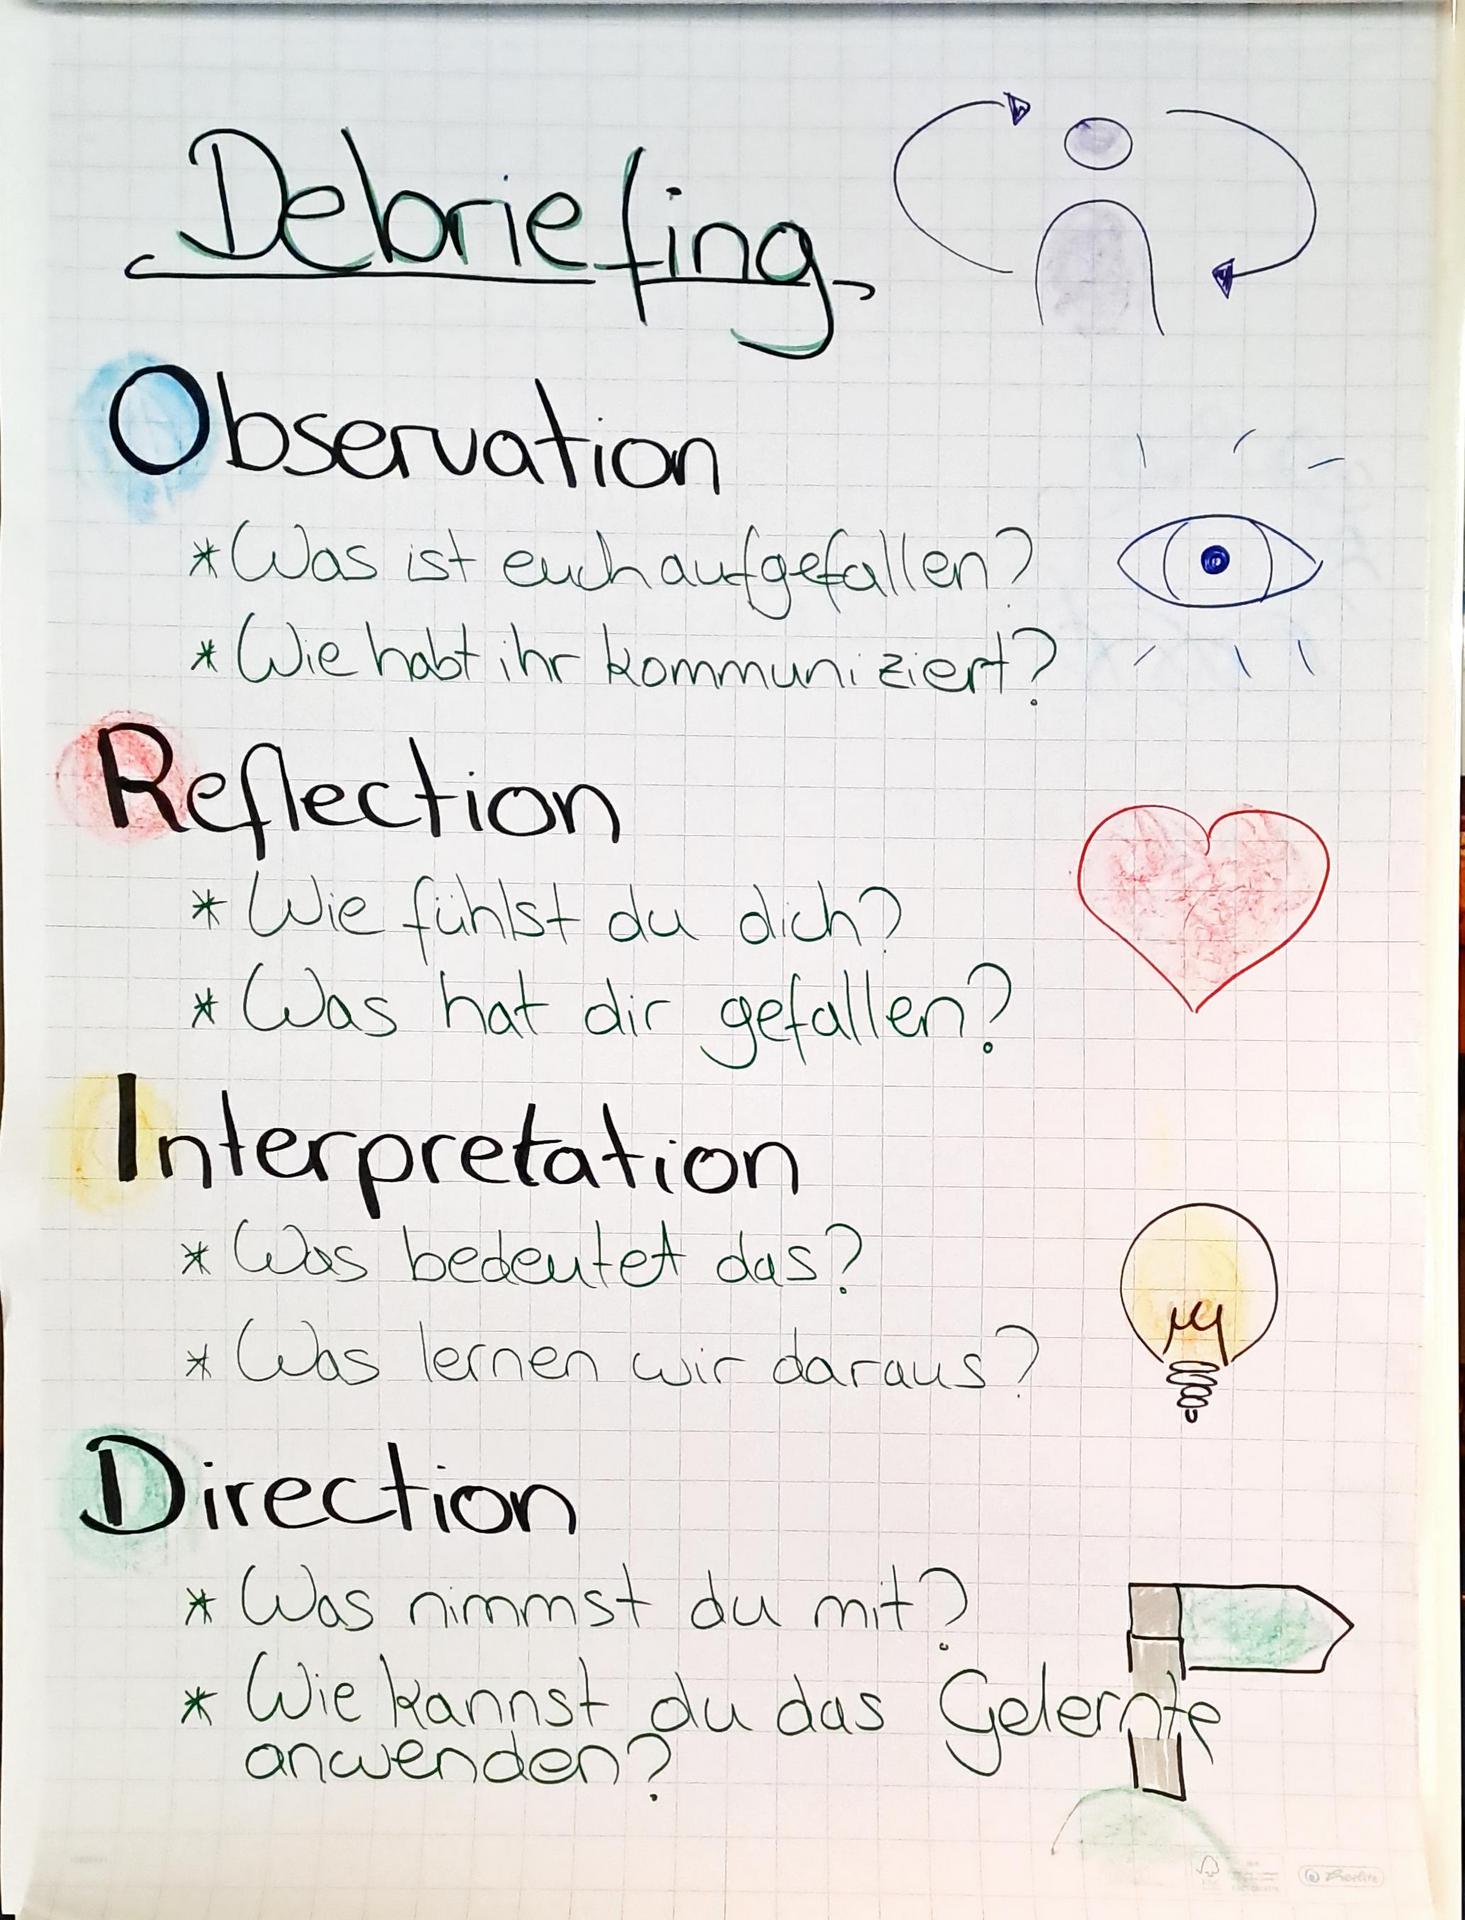 Debriefing
Observation
* Was ist euch aufgefallen?
* Wie habt ihr kommuniziert?
Reflection
* Wie fühlst du dich?
* Was hat dir gefallen?
Interpretation
* Was bedeutet das?
* Was lernen wir daraus?
Direction
* Was nimmst du mit?
* Wie kannst du das Gelernte
anwenden?